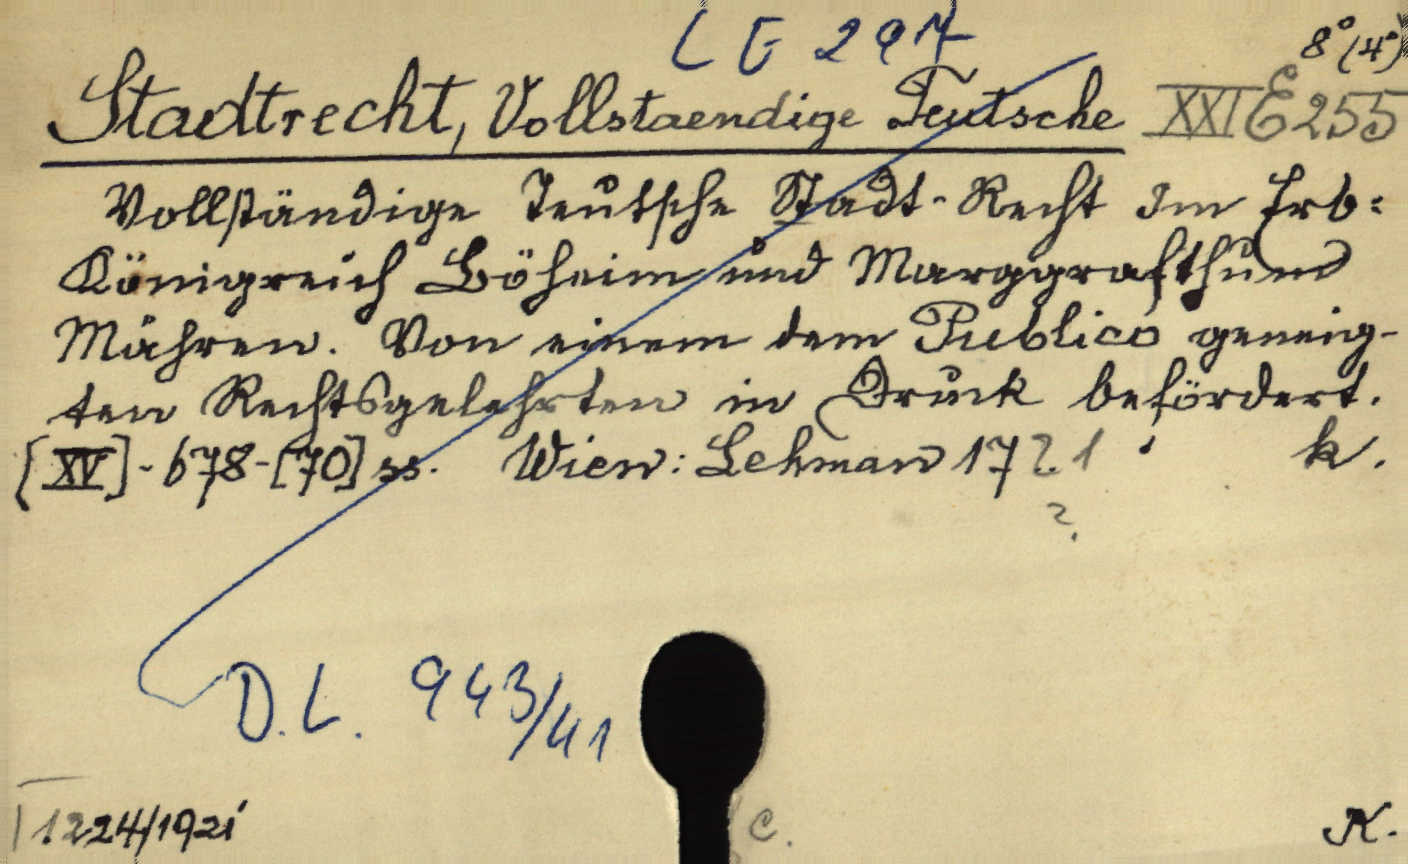 LE 297
8° (4°)
Stadtrecht, Vollstaendige Teutsche XXI E 255
Vollständige Teutsche Stadt-Recht Im Erb=
Königreich Böheim und Marggrafthum
Mähren. Von einem dem Publico geneig-
ten Rechtsgelehrten in Druck befördert.
[XV]-678-[70] ss. Wien: Lehman 1721 k.
?
D.L. 943/41
1224/1921 C. K.